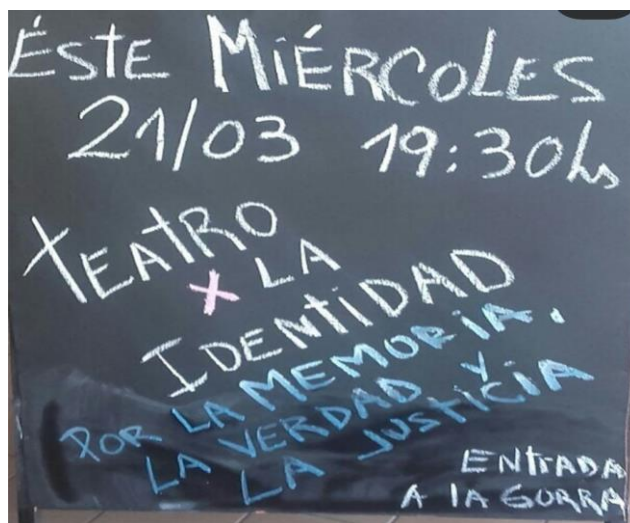 ÉSTE MIÉRCOLES
21/03 19:30hs
TEATRO
X LA
IDENTIDAD
POR LA MEMORIA.
LA VERDAD Y
LA JUSTICIA
ENTRADA
A LA GORRA